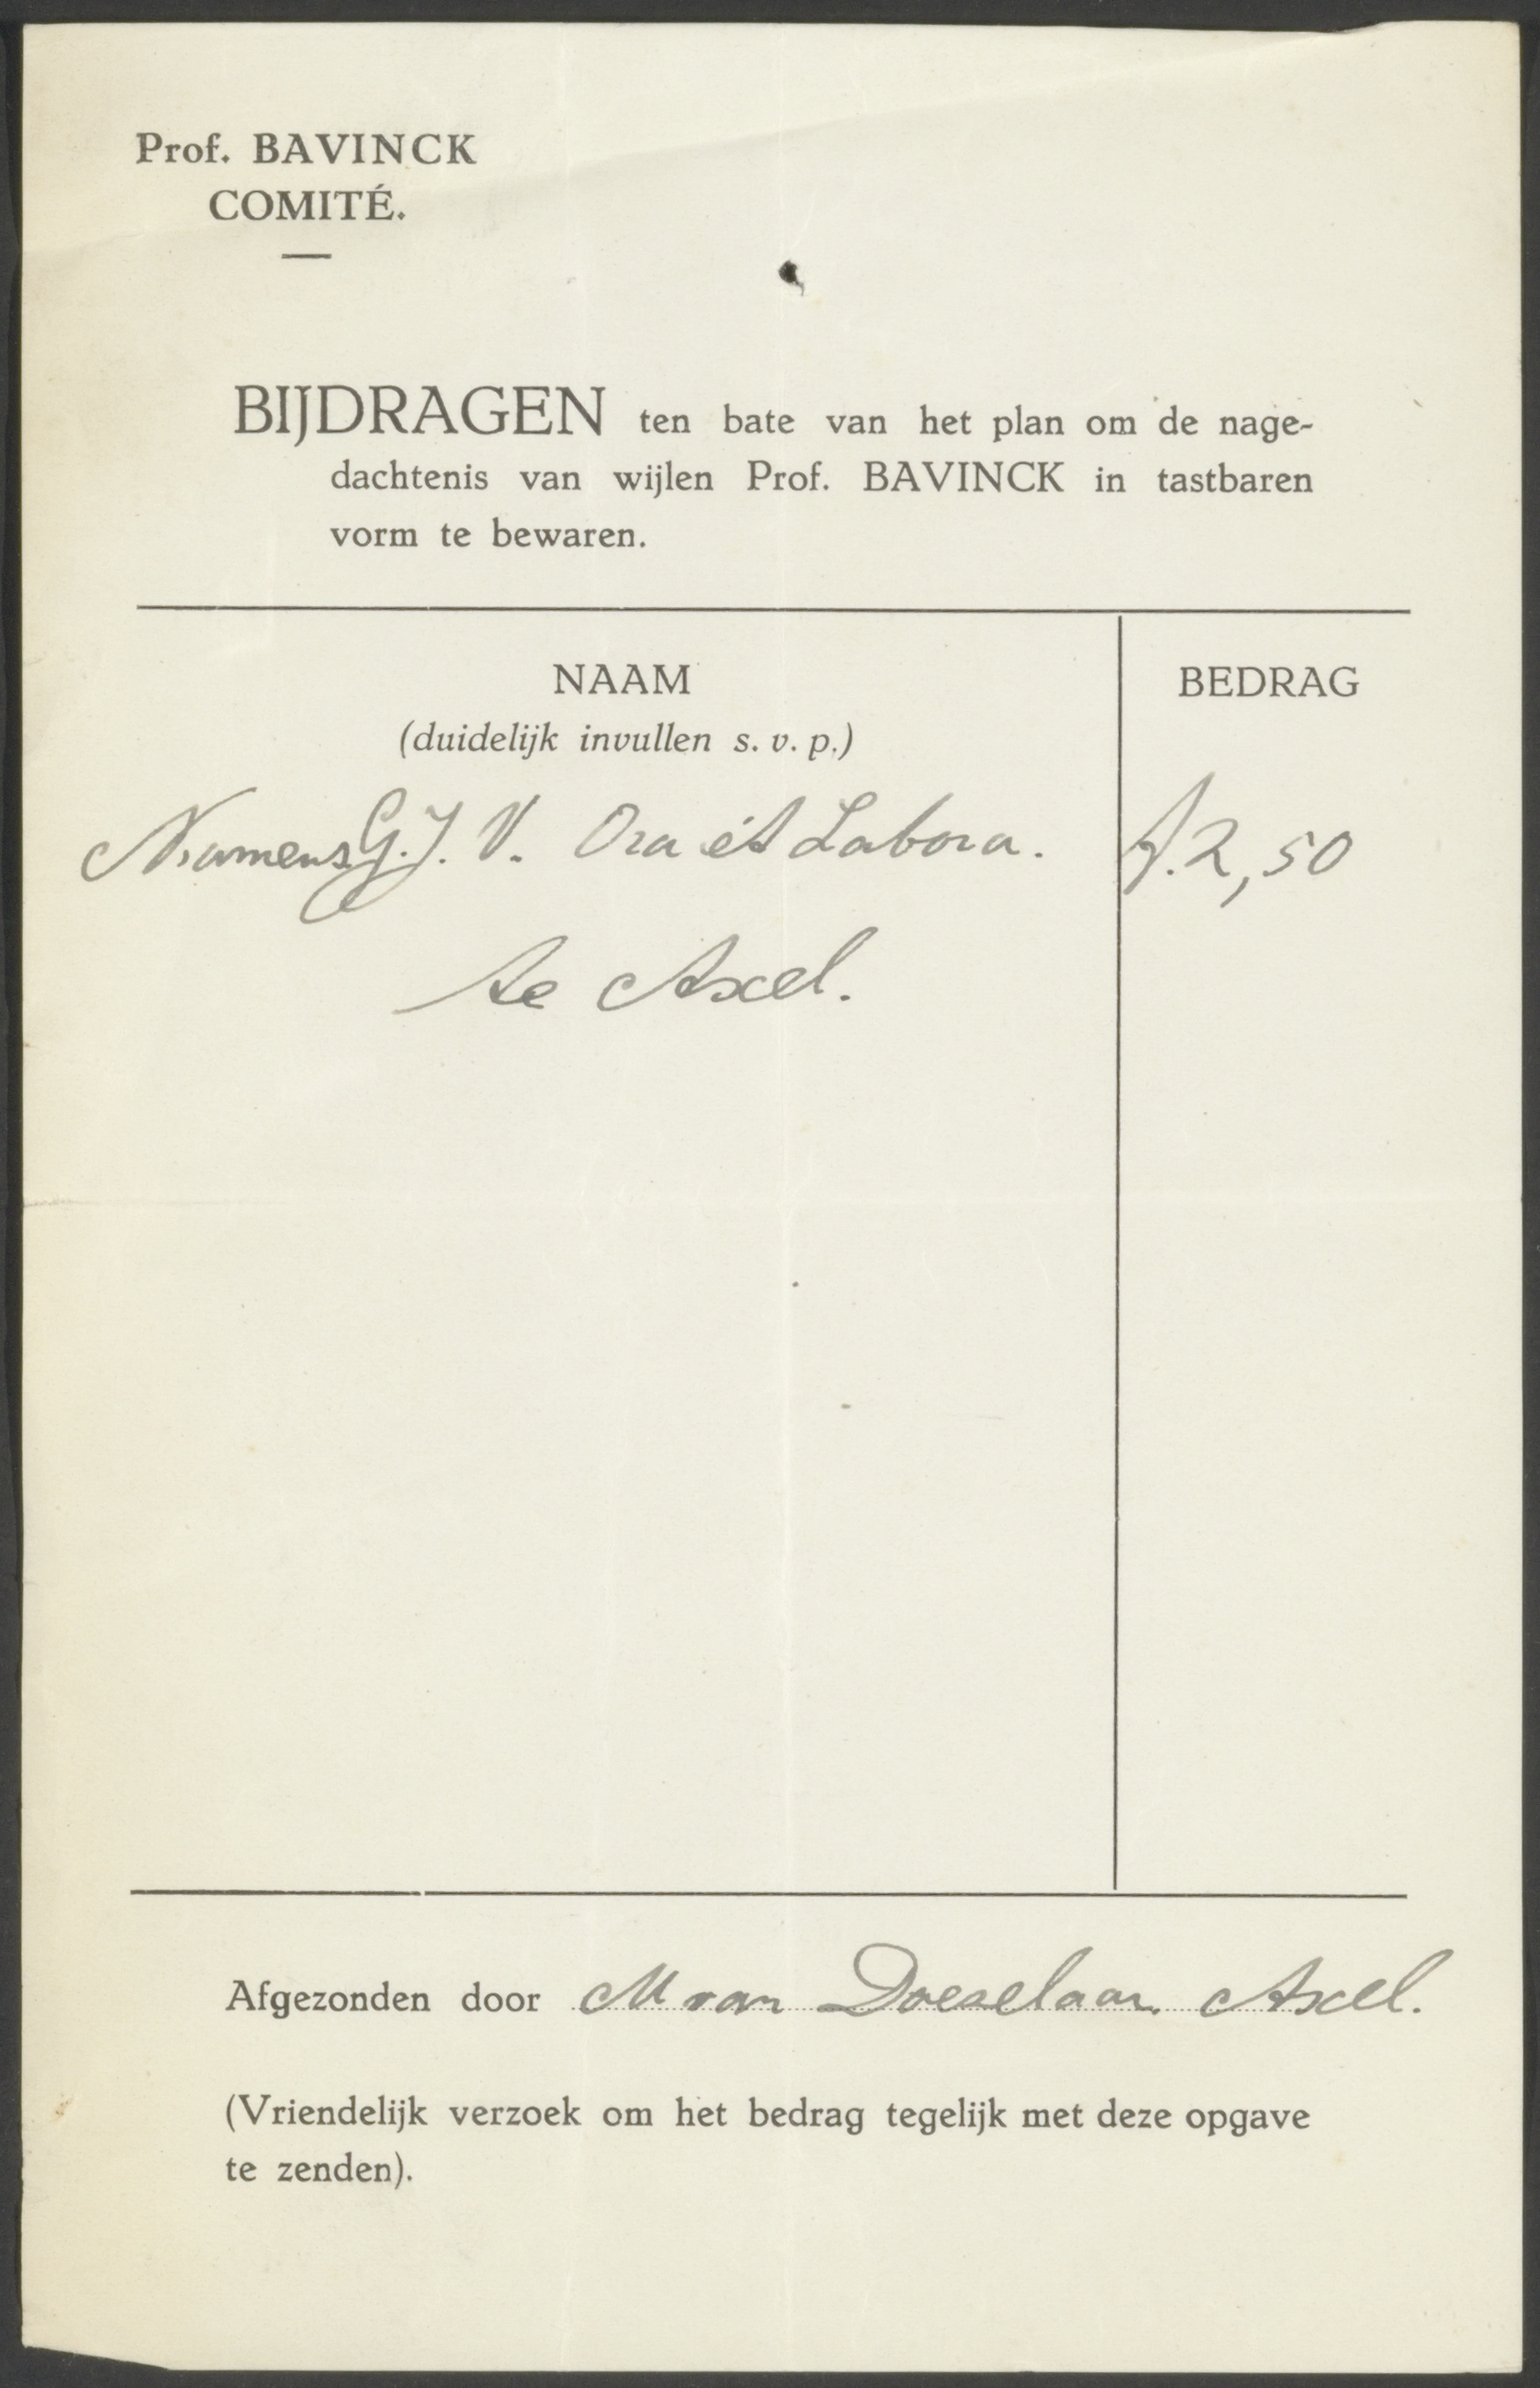 Prof. BAVINCK
COMITÉ.
BIJDRAGEN ten bate van het plan om de nage-
dachtenis van wijlen Prof. BAVINCK in tastbaren
vorm te bewaren.
NAAM BEDRAG
(duidelijk invullen s. v. p.)
Namens G. J. V. Ora et Labora. f. 2,50
te Axel.
Afgezonden door M van Doeselaar. Axel.
(Vriendelijk verzoek om het bedrag tegelijk met deze opgave
te zenden).